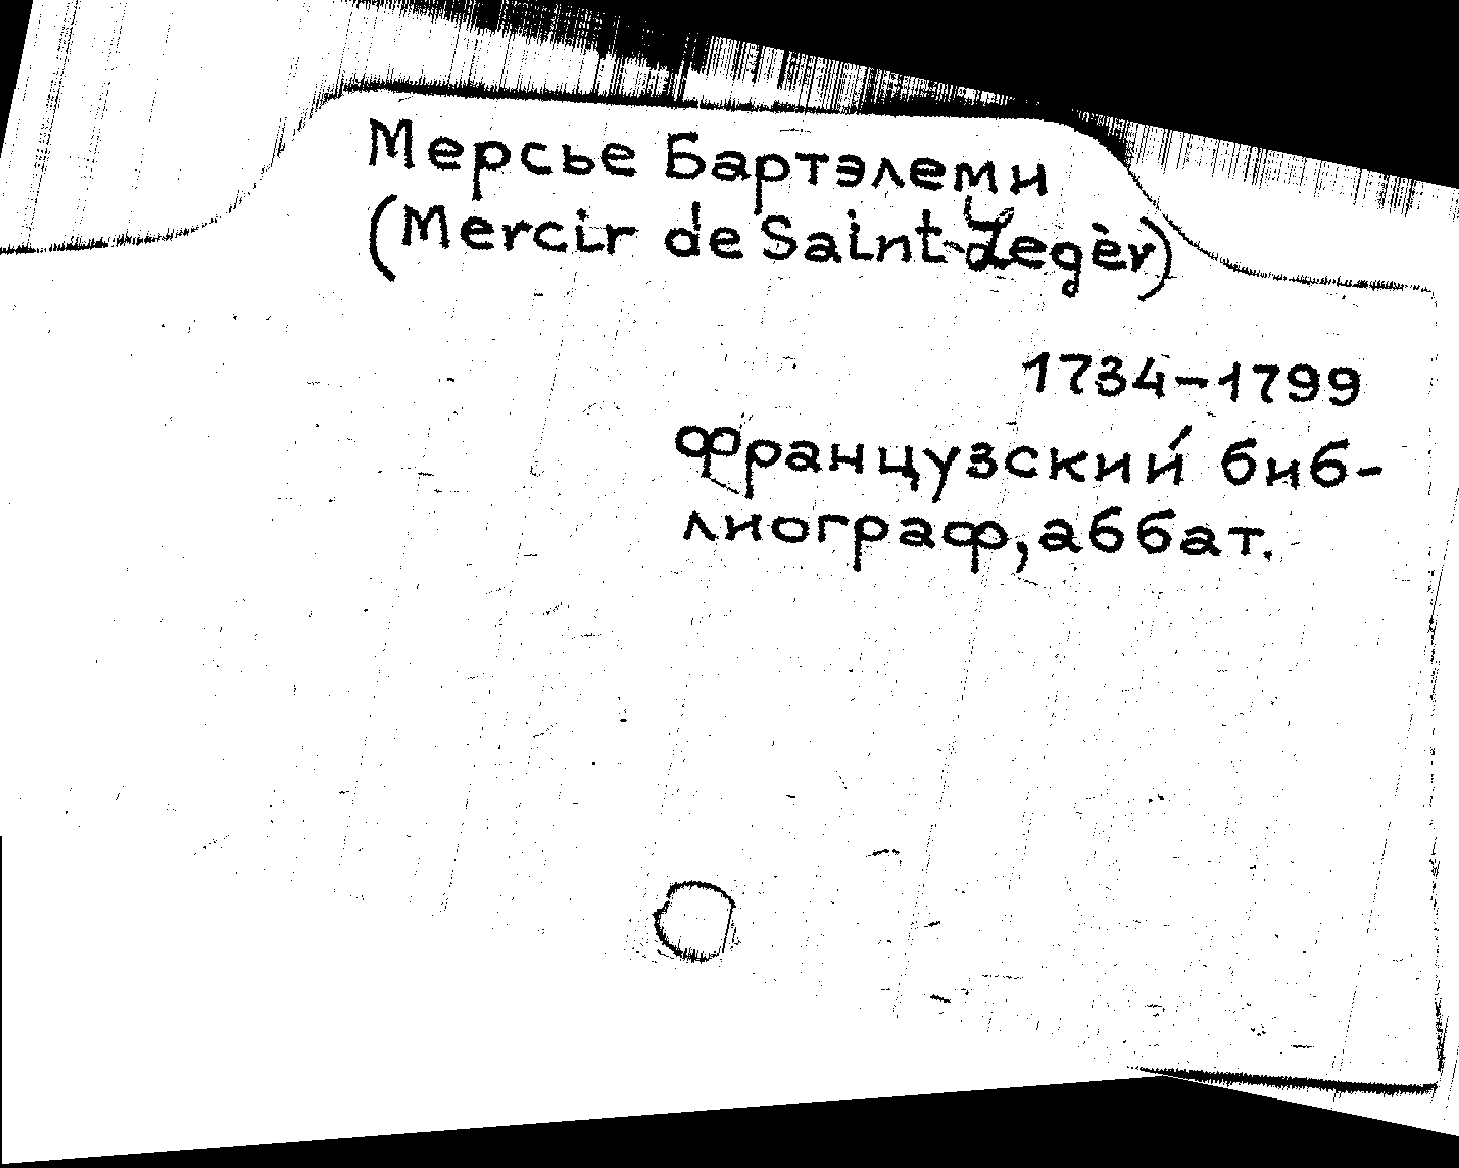 Мерсье Бартэлеми
(Mercir de Saint-Legèr)
1734–1799
французский биб-
лиограф, аббат.